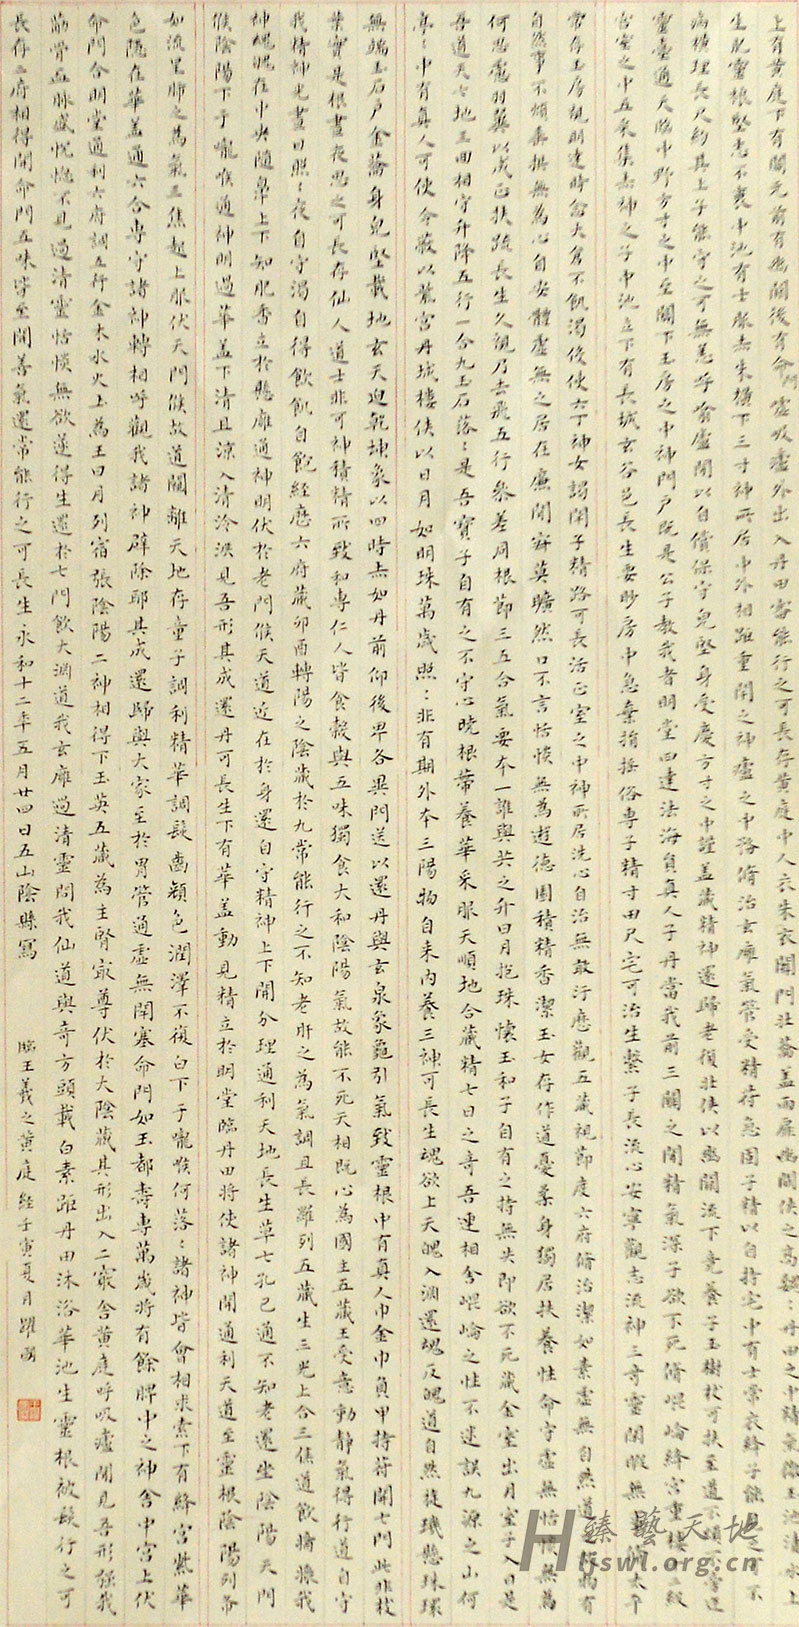 上有黄庭下有關元前有幽關後有命門噓吸廬外出入丹田審能行之可長存黄庭中人衣朱衣關門壯蘥蓋兩扉幽關俠之高魏=丹田之中精氣微玉池清水上
生肥靈根堅志不衰中池有士服赤朱横下三寸神所居中外相距重閉之神廬之中務脩治玄廱氣管受精符急固子精以自持宅中有士常衣絳子能見之可不
病横理長尺約其上子能守之可無恙呼翕廬間以自償保守皃堅身受慶方寸之中謹蓋藏精神還歸老復壯俠以幽關流下竟養子玉樹杖可扶至道不煩不旁迕
靈臺通天臨中野方寸之中至關下玉房之中神門户既是公子教我者明堂四達法海員真人子丹當我前三關之間精氣深子欲不死脩崐崘絳宫重樓十二級
宫室之中五采集赤神之子中池立下有長城玄谷邑長生要眇房中急棄捐揺俗專子精寸田尺宅可治生繫子長流心安寧觀志流神三奇靈閑暇無事脩太平
常存玉房視明達時念大倉不飢渴役使六丁神女謁閉子精路可長活正室之中神所居洗心自治無敢汙歷觀五藏視節度六府脩治潔如素虚無自然道之故物有
自然事不煩垂拱無為心自安體虚無之居在廉間寂莫曠然口不言恬惔無為遊德園積精香潔玉女存作道憂柔身獨居扶養性命守虚無恬惔無為
何思慮羽翼以成正扶疏長生久視乃去飛五行參差同根節三五合氣要本一誰與共之升日月抱珠懷玉和子自有之持無失即欲不死藏金室出月室子入日是
吾道天七地三回相守升降五行一合九玉石落=是吾寶子自有之不守心曉根蔕養華采服天順地合藏精七日之奇吾連相舍崐崘之性不迷誤九源之山何
亭=中有真人可使令蔽以藂宫丹城樓俠以日月如明珠萬歲照=非有期外本三陽物自来内養三神可長生魂欲上天魄入淵還魂反魄道自然旋璣懸珠環
無端玉石户金蘥身皃堅載地玄天迫乾坤象以四時赤如丹前仰後卑各異門送以還丹與玄泉象龜引氣致靈根中有真人巾金巾負甲持符開七門此非枝
葉實是根晝夜思之可長存仙人道士非可神積精所致和專仁人皆食榖與五味獨食大和陰陽氣故能不死天相既心為國主五藏王受意動静氣得行道自守
我精神光晝日照=夜自守渴自得飲飢自飽經歷六府藏卯酉轉陽之陰藏於九常能行之不知老肝之為氣調且長羅列五藏生三光上合三焦道飲漿㾗我
神魂魄在中央隨鼻上下知肥香立於懸廱通神明伏於老門候天道近在於身還自守精神上下開分理通利天地長生草七孔已通不知老還坐陰陽天門
候陰陽下于嚨喉通神明過華蓋下清且涼入清泠淵見吾形其成還丹可長生下有華蓋動見精立於明堂臨丹田将使諸神開通利天道至靈根陰陽列布
如流星肺之為氣三焦起上服伏天門候故道闚離天地存童子調利精華調髮齒顔色潤澤不復白下于嚨喉何落=諸神皆會相求索下有絳宫紫華
色隱在華蓋通六合專守諸神轉相呼觀我諸神辟除邪其成還歸與大家至於胃管通虚無閉塞命門如玉都壽專萬歲将有餘脾中之神舍中宫上伏
命門合明堂通利六府調五行金木水火土為王日月列宿張陰陽二神相得下玉英五藏為主腎最尊伏於大陰藏其形出入二竅舍黄庭呼吸廬間見吾形强我
筋骨血脉盛恍惚不見過清靈恬惔無欲遂得生還於七門飲大淵道我玄廱過清靈問我仙道與奇方頭載白素距丹田沐浴華池生靈根被髮行之可
長存二府相得開命門五味皆至開善氣還常能行之可長生永和十二年五月廿四日五山陰縣寫
臨王羲之黄庭經壬寅夏月躍明
臻藝天地
Hljswl.org.cn